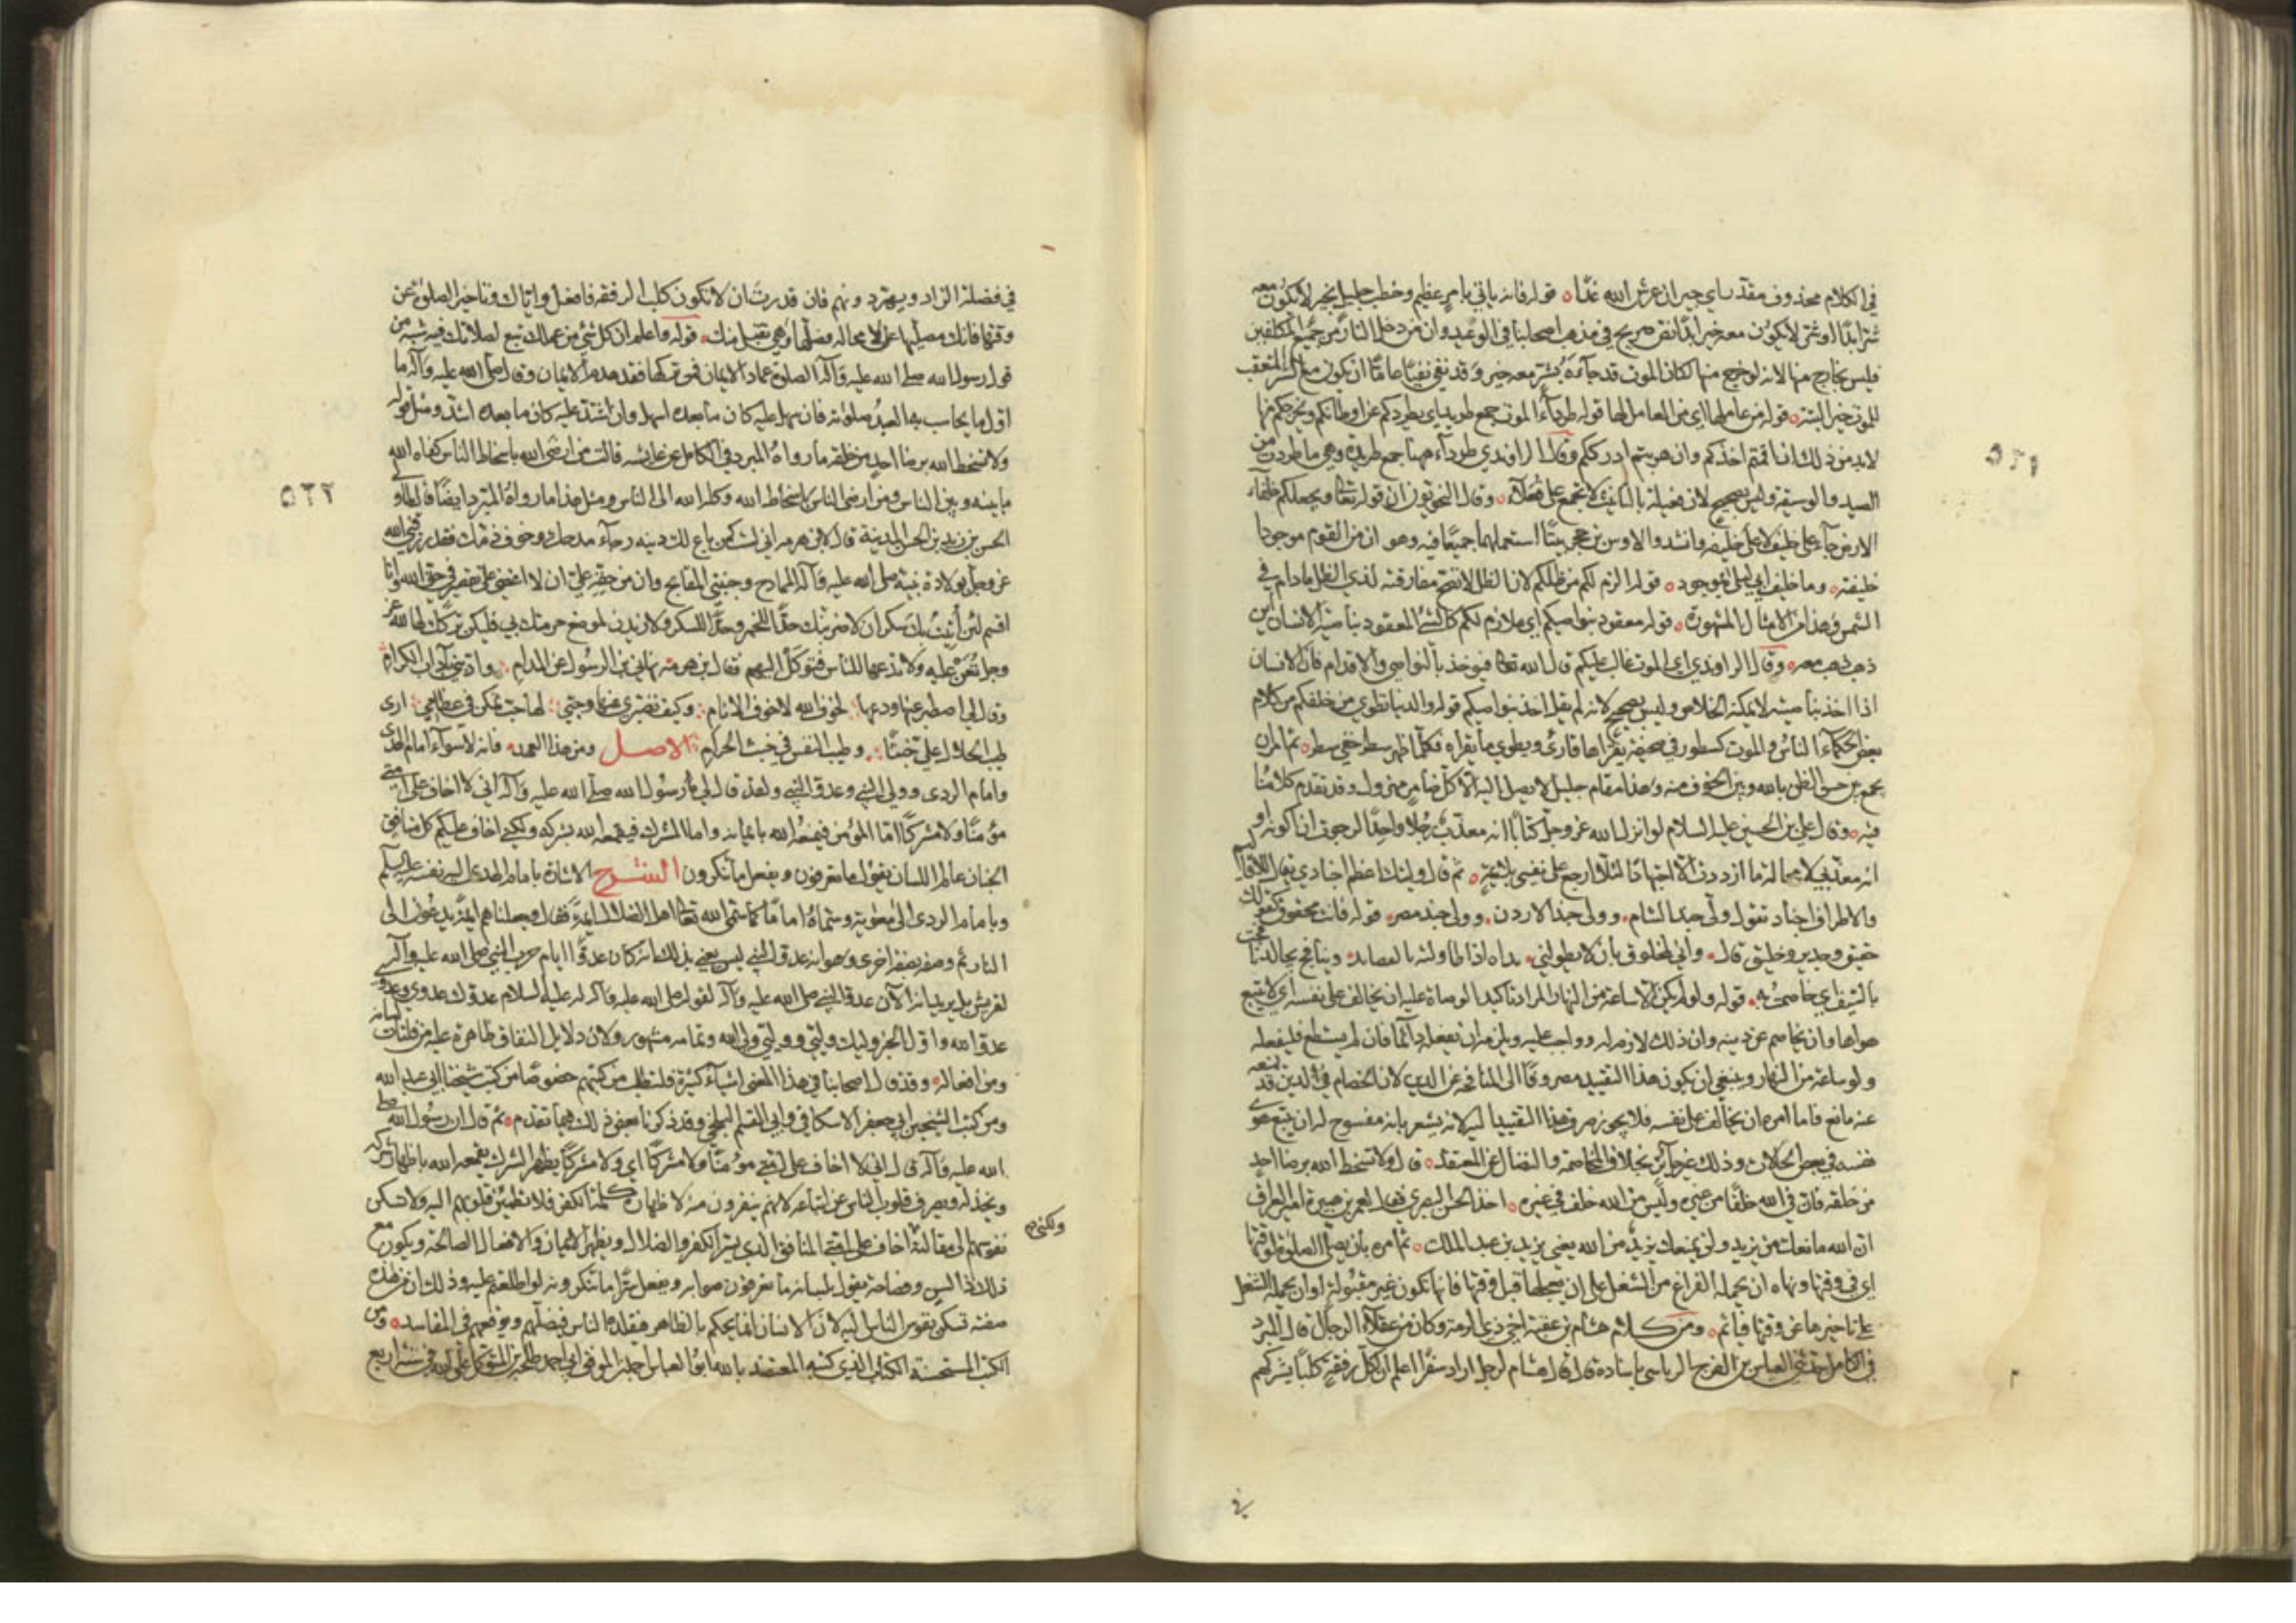 في الكلام محذوف مقدر اي جيران عرش الله غدا ه قوله فانه ياتي بامر عظيم وخطب جليل بخير لا يكون معه
شر ابدا او شر لا يكون معه خير ابدا نص صريح في مذهب اصحابنا في الوعيد وان من دخل النار من جميع المكلفين
فليس بخارج منها لانه لو خرج منها لكان الموت قد جاءه بشر معه خير وقد نفى نفيا عاما ان يكون مع الشر المعقب
للموت خير البتة ه قوله من عاملها اي من العامل لها قوله طرداء الموت جمع طريد اي يطردكم عن اوطانكم ويخرجكم منها
لابد من ذلك ان اقمتم اخذكم وان هربتم ادرككم وقال الراوندي طرداء ههنا جمع طريدة وهي ما طردت من
الصيد والوسيقة وليس بصحيح لان فعيلة بالتانيث لا تجمع على فعلاء ه وقال النحويون ان قوله تعالى ويجعلكم خلفاء
الارض جاء على خليف لا على خليفه وانشدوا لاوس بن حجر بيتا استعملهما جميعا فيه وهو ان من القوم موجودا
خليفته ه وما خليف ابي ليلى بموجود ه قوله الزم لكم من ظلكم لان الظل لا تصح مفارقته لذي الظل مادام في
الشمس وهذا من الامثال المشهورة ه قوله معقود بنواصيكم اي ملازم لكم كالشيء المعقود بناصية الانسان اين
ذهب ذهب معه ه وقال الراوندي اي الموت غالب عليكم قال الله تعالى فيوخذ بالنواصي والاقدام فان الانسان
اذا اخذ بناصيته لا يمكنه الخلاص وليس بصحيح لانه لم يقل اخذ بنواصيكم قوله والدنيا تطوى من خلفكم من كلام
بعض الحكماء الناس والموت كسطور في صحيفة يقراها قارئ ويطوي ما يقراه فكلما ظهر سطر خفي سطر ه ثم امره ان
يجمع بين حسن الظن بالله وبين الخوف منه وهذا مقام جليل لا يصل اليه الا كل ضامر مهزول وقد تقدم كلامنا
فيه ه وقال علي بن الحسين عليه السلام لو انزل الله عز وجل كتابا انه معذب رجلا واحدا لرجوت ان اكونه او
انه معذبي لا محالة ما ازددت الا اجتهادا لئلا ارجع على نفسي بلائمة ه ثم قال وليتك اعظم اجنادي يقال للاقاليم
والاطراف اجناد تقول ولي جند الشام ه وولي جند الاردن ه وولي جند مصر ه قوله فانت محقوق كقولك
حقيق وجدير وخليق قال ه واني لمحقوق بان لا يطولني ه نداه اذا طاولته بالقصايد ه وينافح يجالد نافحت
بالسيف اي خاصمت به ه قوله ولو لم يكن الا ساعة من النهار المراد تاكيد الوصاة عليه ان يخالف على نفسه اي لا يتبع
هواها وان يخاصم عن دينه وان ذلك لازم له وواجب عليه ويلزم ان يفعله دائما فان لم يستطع فليفعله
ولو ساعة من النهار وينبغي ان يكون هذا التقييد مصروفا الى المنافحة عن الدين لان الخصام في الدين قد يمنعه
عنه مانع فاما امره ان يخالف على نفسه فلا يجوز صرف هذا التقييد اليه لانه يشعر بانه مفسوح له ان يتبع هوى
نفسه في بعض الحالات وذلك غير جائز بخلاف المخاصمة والنضال عن المعتقد ه قال ولا تسخط الله برضا احد
من خلقه فان في الله خلفا من غيره وليس من الله خلف في غيره ه اخذه الحسن البصري فقال لعمر بن هبيرة امير العراق
ان الله مانعك من يزيد ولن يمنعك يزيد من الله يعني يزيد بن عبد الملك ه ثم امره بان يصلي الصلوة لوقتها
اي في وقتها ونهاه ان يحمله الفراغ من الشغل على ان يعجلها قبل وقتها فانها تكون غير مقبولة او ان يحمله الشغل
على تاخيرها عن وقتها فياثم ه ومن كلام هشام بن عقبة اخي ذي الرمة وكان من عقلاء الرجال قال المبرد
في الكامل حدثني العباس بن الفرج الرياشي باسناده قال قال هشام لرجل اراد سفرا اعلم ان لكل رفقة كلبا يشركهم
في
٥٢١
في فضلة الزاد ويهر دونهم فان قدرت ان لا تكون كلب الرفقه فافعل واياك وتاخير الصلوة عن
وقتها فانك مصليها لا محالة فصلها وهي تقبل منك ه قوله واعلم ان كل شي من عملك تبع لصلاتك فيه شبه من
قول رسول الله صلى الله عليه وآله الصلوة عماد الايمان فمن تركها فقد هدم الايمان وقال صلى الله عليه وآله ما
اول ما يحاسب به العبد صلوته فان سهل عليه كان ما بعده اسهل وان اشتد عليه كان ما بعده اشد ومثل قوله
ولا تسخط الله برضا احد من خلقه ما رواه المبرد في الكامل عن عائشه قالت من ارضى الله باسخاط الناس كفاه الله
ما بينه وبين الناس ومن ارضى الناس باسخاط الله وكله الله الى الناس ومثل هذا ما رواه المبرد ايضا قال لما ولي
الحسن بن زيد بن الحسن المدينة قال لابن هرمه اني لست كمن باع لك دينه رجاء مدحك وخوف ذمك فقد رزقني الله
عز وجل بولادة نبيه صلى الله عليه وآله الممادح وجنبني المقابح وان من حقه علي ان لا اغضي على تقصير في حق الله وانا
اقسم لئن اتيت بك سكران لاضربنك حدا للخمر وحدا للسكر ولازيدن لموضع حرمتك بي فليكن تركك لها لله عز
وجل تعن عليه ولا تدعها للناس فتوكل اليهم فقال ابن هرمة نهاني ابن الرسول عن المدام ؛ وادبني بآداب الكرام
وقال لي اصطبر عنها ودعها ؛ لخوف الله لا خوف الانام ؛ وكيف تصبري عنها وحبي ؛ لها حب تمكن في عظامي ؛ ارى
طيب الحلال علي خبثا ؛ وطيب النفس في خبث الحرام ؛ الاصل ومن هذا العهد ه فانه لا سواء امام الهدى
وامام الردى وولي النبي وعدو النبي ولقد قال لي رسول الله صلى الله عليه وآله اني لا اخاف على امتي
مؤمنا ولا مشركا اما المؤمن فيمنعه الله بايمانه واما المشرك فيقمعه الله بشركه ولكني اخاف عليكم كل منافق
الجنان عالم اللسان يقول ما تعرفون ويفعل ما تنكرون الشرح الاشارة بامام الهدى اليه نفسه عليه السلم
وبامام الردى الى معوية وسماه اماما كما سمى الله تعالى اهل الضلال ائمة فقال وجعلناهم ائمة يدعون الى
النار ثم وصفه بصفة اخرى وهو انه عدو النبي ليس يعني بذلك انه كان عدوا ايام حرب النبي صلى الله عليه وآله
لقريش بل يريد انه الآن عدو النبي صلى الله عليه وآله لقوله صلى الله عليه وآله له عليه السلام عدوك عدوي وعدوي
عدو الله واول الخبر وليك وليي ووليي ولي الله وتمامه مشهور ولان دلايل النفاق ظاهرة عليه من فلتات لسانه
ومن افعاله ه وقد قال اصحابنا في هذا المعنى اشياء كثيرة فلتطلب من كتبهم خصوصا من كتب شيخنا ابي عبد الله
ومن كتب الشيخين ابي جعفر الاسكافي وابي القسم البلخي وقد ذكرنا بعض ذلك فيما تقدم ه ثم قال ان رسول الله صلى
الله عليه وآله قال اني لا اخاف على امتي مؤمنا ولا مشركا اي ولا مشركا يظهر الشرك يقمعه الله باظهار شركه
ويخذله ويصرف قلوب الناس عن اتباعه لانهم ينفرون منه لاظهاره كلمة الكفر فلا تطمئن قلوبهم اليه ولا تسكن
نفوسهم الى مقالته اخاف على امتي المنافق الذي يسر الكفر والضلال ويظهر الايمان والافعال الصالحة ويكون مع
ولكني
ذلك ذا لسن وفصاحة يقول بلسانه ما تعرفون صوابه ويفعل سرا ما تنكرونه لو اطلعتم عليه وذلك ان من هذه
صفته تسكن نفوس الناس اليه لان الانسان انما يحكم بالظاهر فيقلده الناس فيضلهم ويوقعهم في المفاسد ه ومن
الكتب المستحسنة الكتاب الذي كتبه المعتضد بالله ابو العباس احمد بن الموفق ابي احمد طلحة بن المتوكل على الله في سنة اربع
٥٢٢